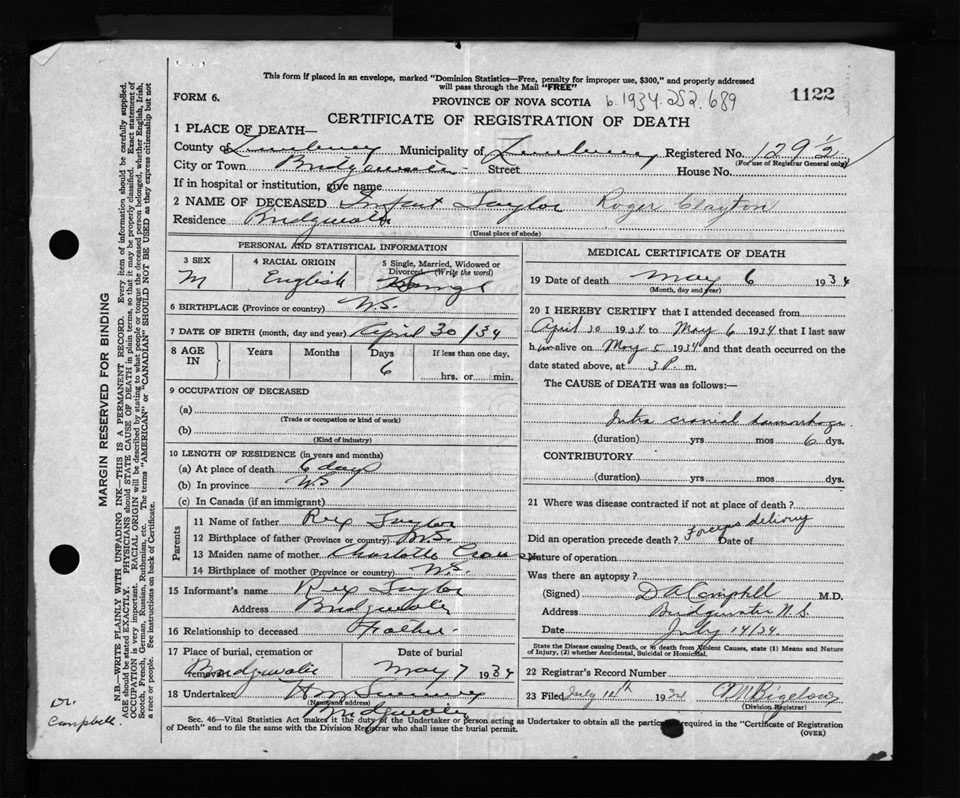 This form if placed in an envelope, marked "Dominion Statistics—Free, penalty for improper use, $300," and properly addressed
will pass through the Mail "FREE"
FORM 6.
PROVINCE OF NOVA SCOTIA b.1934.252.689
1122
CERTIFICATE OF REGISTRATION OF DEATH
1 PLACE OF DEATH—
County of Lunenburg Municipality of Lunenburg Registered No. 129½
(For use of Registrar General only)
City or Town Bridgewater Street House No.
If in hospital or institution, give name
2 NAME OF DECEASED Infant Taylor Roger Clayton
Residence Bridgewater
(Usual place of abode)
PERSONAL AND STATISTICAL INFORMATION
3 SEX M
4 RACIAL ORIGIN English
5 Single, Married, Widowed or Divorced (Write the word) Single
6 BIRTHPLACE (Province or country) N.S.
7 DATE OF BIRTH (month, day and year) April 30/34
8 AGE IN Years Months Days 6 If less than one day, hrs. or min.
9 OCCUPATION OF DECEASED
(a)
(Trade or occupation or kind of work)
(b)
(Kind of industry)
10 LENGTH OF RESIDENCE (in years and months)
(a) At place of death 6 days
(b) In province N.S.
(c) In Canada (if an immigrant)
Parents
11 Name of father Rex Taylor
12 Birthplace of father (Province or country) N.S.
13 Maiden name of mother Charlotte
14 Birthplace of mother (Province or country) N.S.
15 Informant's name Rex Taylor
Address Bridgewater
16 Relationship to deceased Father
17 Place of burial, cremation or removal Bridgewater
Date of burial May 7 1934
18 Undertaker
(Name and address)
Bridgewater
MEDICAL CERTIFICATE OF DEATH
19 Date of death May 6 1934
(Month, day and year)
20 I HEREBY CERTIFY that I attended deceased from
April 30 1934 to May 6 1934 that I last saw
him alive on May 5 1934 and that death occurred on the
date stated above, at 3 P. m.
The CAUSE of DEATH was as follows:—
Intra cranial hemorrhage
(duration) yrs mos 6 dys.
CONTRIBUTORY
(duration) yrs mos dys.
21 Where was disease contracted if not at place of death?
Did an operation precede death? Forceps delivery Date of
Nature of operation
Was there an autopsy?
(Signed) D A Campbell M.D.
Address Bridgewater N.S.
Date July 14/34
State the Disease causing Death, or in death from Violent Causes, state (1) Means and Nature
of Injury, (2) whether Accidental, Suicidal or Homicidal.
22 Registrar's Record Number
23 Filed July 14th 1934
(Division Registrar)
Sec. 46—Vital Statistics Act makes it the duty of the Undertaker or person acting as Undertaker to obtain all the particulars required in the "Certificate of Registration
of Death" and to file the same with the Division Registrar who shall issue the burial permit.
(OVER)
MARGIN RESERVED FOR BINDING
N.B.—WRITE PLAINLY WITH UNFADING INK—THIS IS A PERMANENT RECORD. Every item of information should be carefully supplied.
AGE should be stated EXACTLY. PHYSICIANS should STATE CAUSE OF DEATH in plain terms, so that it may be properly classified. Exact statement of
OCCUPATION is very important. RACIAL ORIGIN will be described by stating to what people or tongue the deceased person belonged, whether English, Irish,
Scotch, French, German, Russian, Ruthenian, etc. The terms "AMERICAN" or "CANADIAN" SHOULD NOT BE USED as they express citizenship but not
a race or people. See instructions on back of Certificate.
Dr.
Campbell